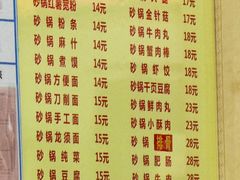 砂锅红薯宽粉 14元
砂锅粉条 14元
砂锅麻什 14元
砂锅煮馍 14元
砂锅方便面 14元
砂锅刀削面 15元
砂锅手工面 15元
砂锅龙须面 15元
砂锅纯菜 15元
砂锅豆腐 15元
砂锅金针菇 17元
砂锅牛肉丸 17元
砂锅蟹肉棒 18元
砂锅虾饺 18元
砂锅千页豆腐 18元
砂锅鲜肉丸 23元
砂锅小酥肉 23元
砂锅排骨 28元
砂锅肥肠 28元